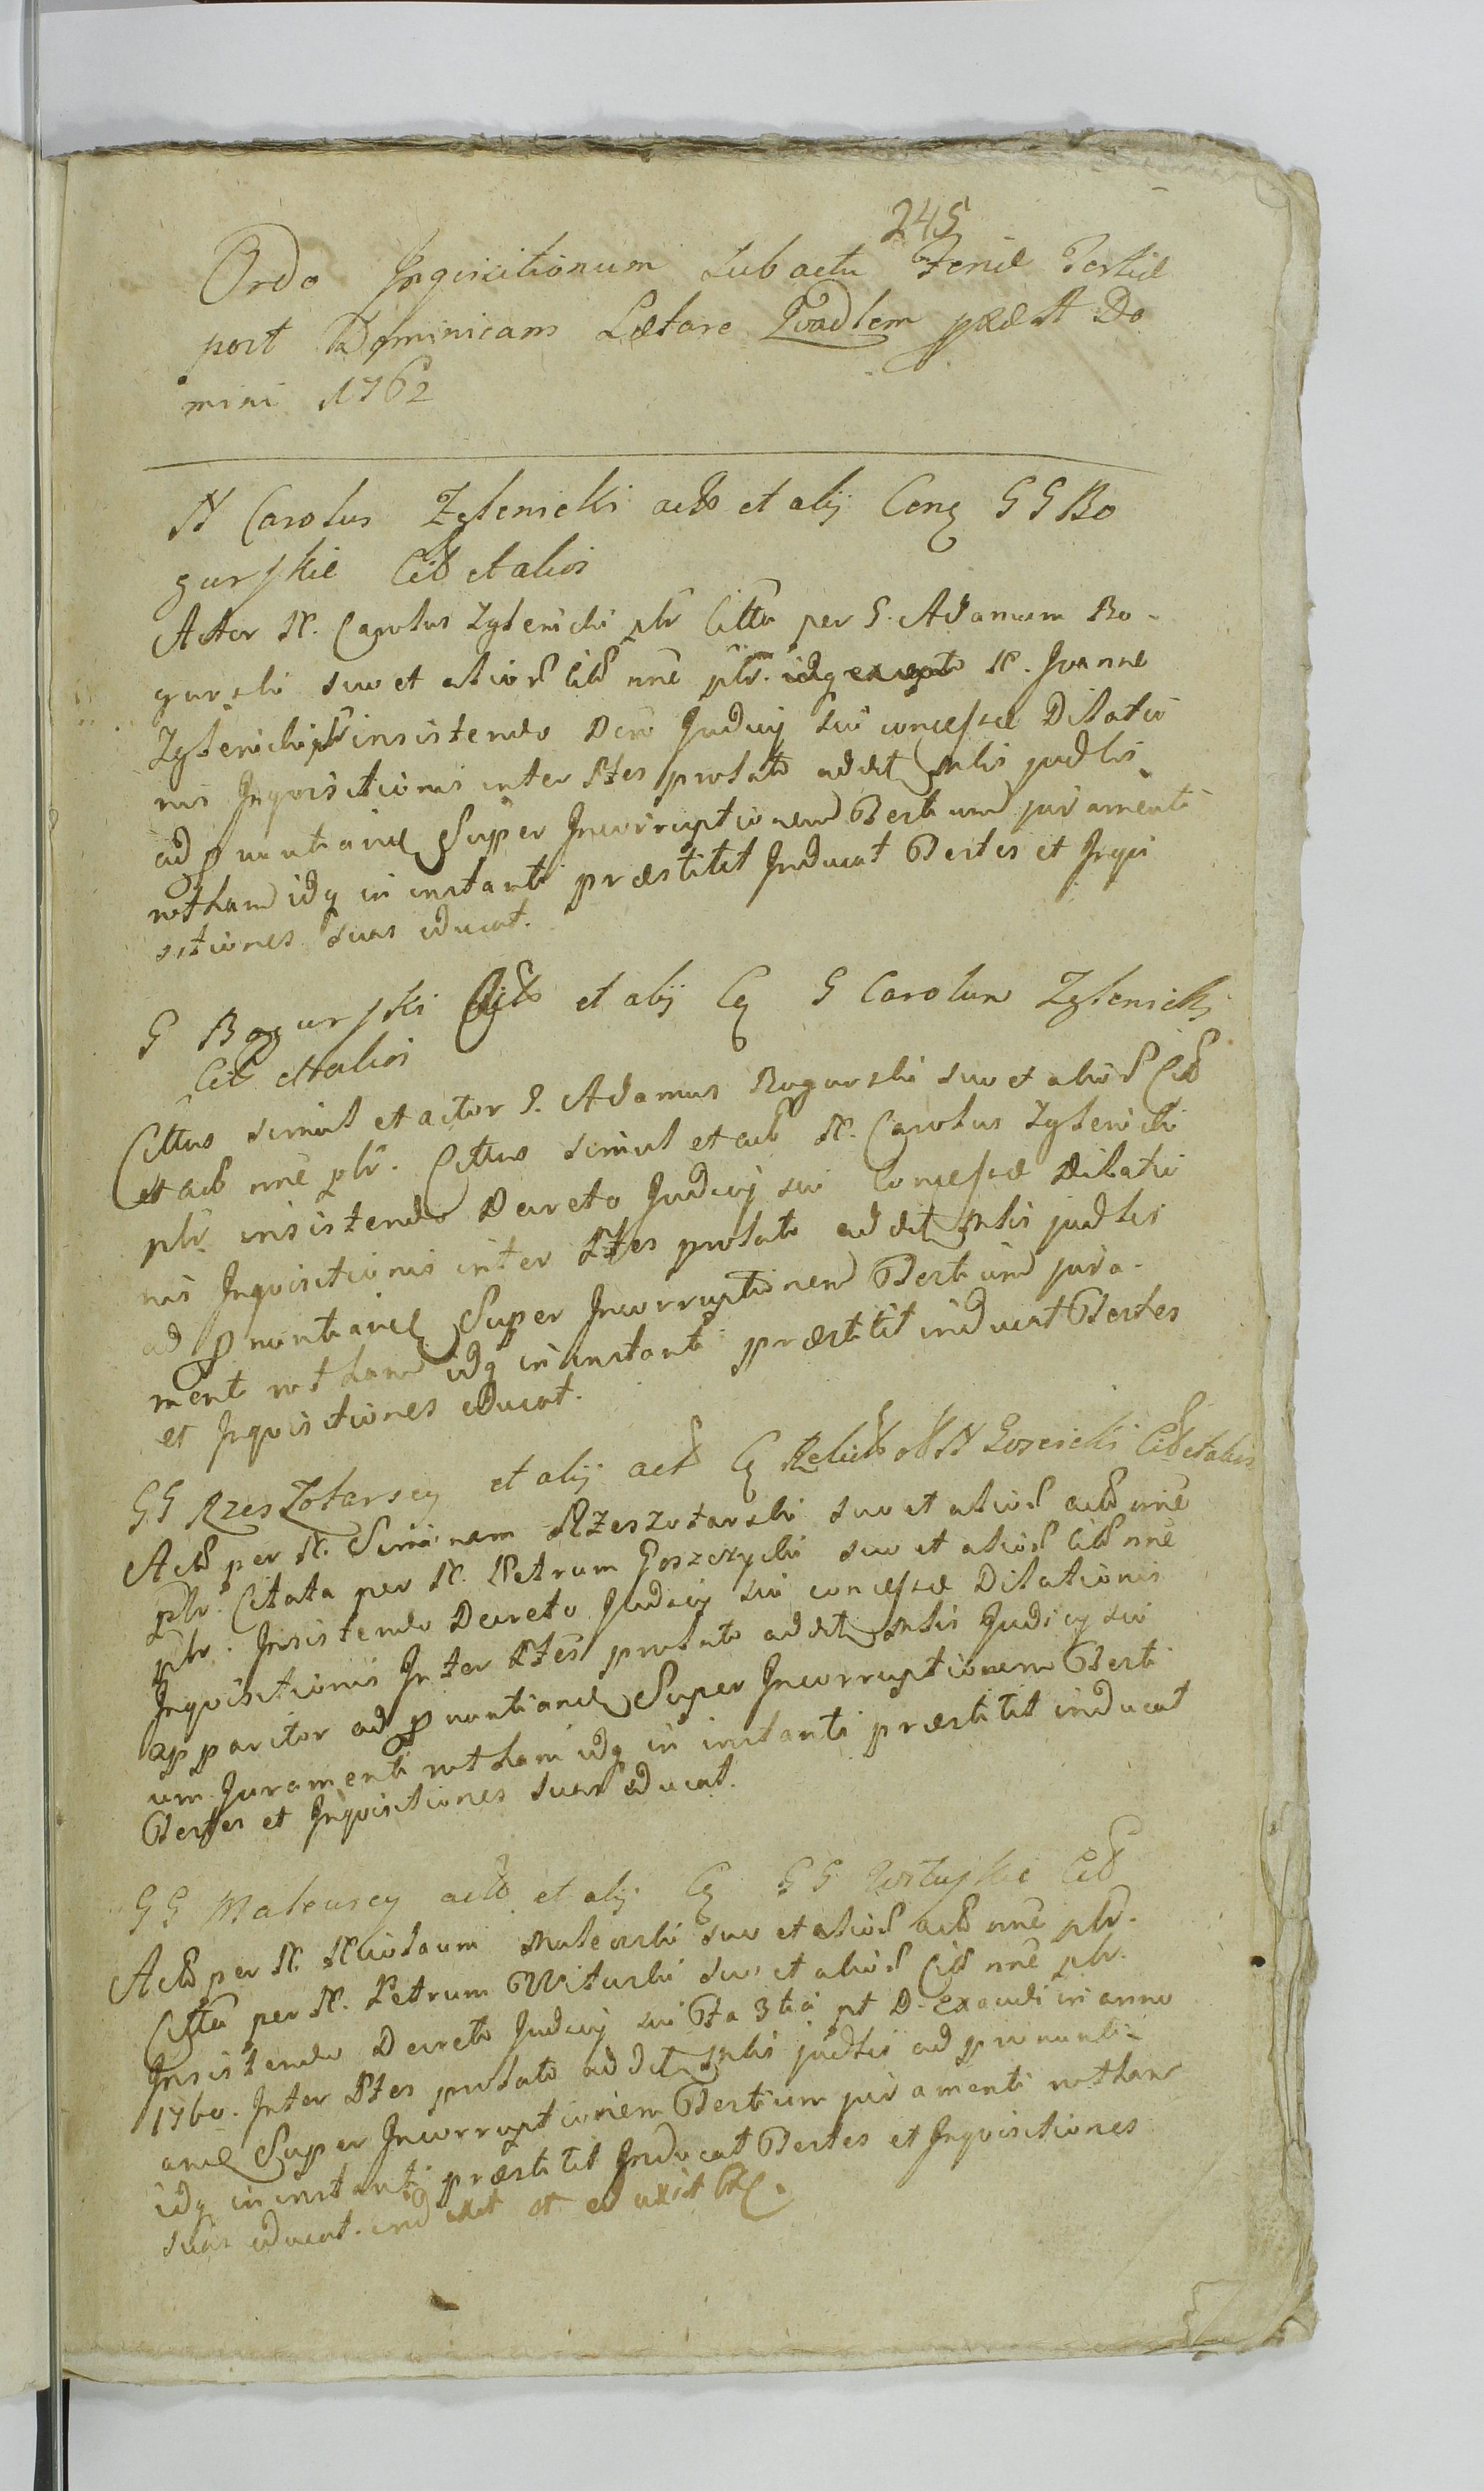 245
Ordo Inqvisitionum sub actu Feriæ Tertiæ
post Dominicam Lætare Qvadlem pxæ A Do
mini 1762
N Carolus Zglenicki act et alij Conq GG Bo
gurskie Cit et alios
Actor N. Carolus Zglenicki plr Citta per G. Adamum Bo-
gurski suo et alior Cit nne plr. idq excepto N. Joanne
Zglenicki plr insistendo Dcro Judicij sui concessæ Dilatio
nis Inqvisitionis inter Ptes prolato addit mlis judlis
ad pnuntiand Super Incorruptionem Testium juramenti
rotham idq in instanti præstitit Inducat Testes et Inqvi
sitiones suas educat.
G Bogurski Cit et alij Cq G Carolum Zglenicki
Cit et alios
Cittus simul et actor G. Adamus Bogurski suo et alior Cit
et act nne plr. Cittus simul et act N. Carolus Zglenicki
plr insistendo Decreto Judicij sui Concessæ Dilatio
nis Inqvisitionis inter Ptes prolato addit mlis judlis
ad pnuntiand Super Incorruptionem Testium jura-
menti rotham idq in instanti præstitit inducat Testes
et Inqvisitiones educat.
GG Rzeszotarscy et alij act Cq Relict N Goscicki Cit et alios
Act per N. Simonem Rzeszotarski suo et alior act nne
plr. Citata per N. Petrum Goszczycki suo et alior Cit nne
plr. Insistendo Decreto Judicij sui concessæ Dilationis
Inqvisitionis Inter Ptes prolato addit mlis Judicij sui
apparitor ad pnuntiand Super Incorruptionem Testi
um Juramenti rotham idq in instanti præstitit inducat
Testes et Inqvisitiones suas educat.
GG Maleuscy act et alij Cq GG Wituskie Cit
Act per N. Nicolaum Maleuski suo et alior act nne plr.
Citta per N. Petrum Wituski suo et alior Cit nne plr.
Insistendo Decreto Judicij sui Fa 3tia pt D. Exaudi in anno
1760. Inter Ptes prolato addit mlis judlis ad pronunti-
and Super Incorruptionem Testium juramenti rotham
idq in instanti præstitit Inducat Testes et Inqvisitiones
suas educat. induxit et eduxit